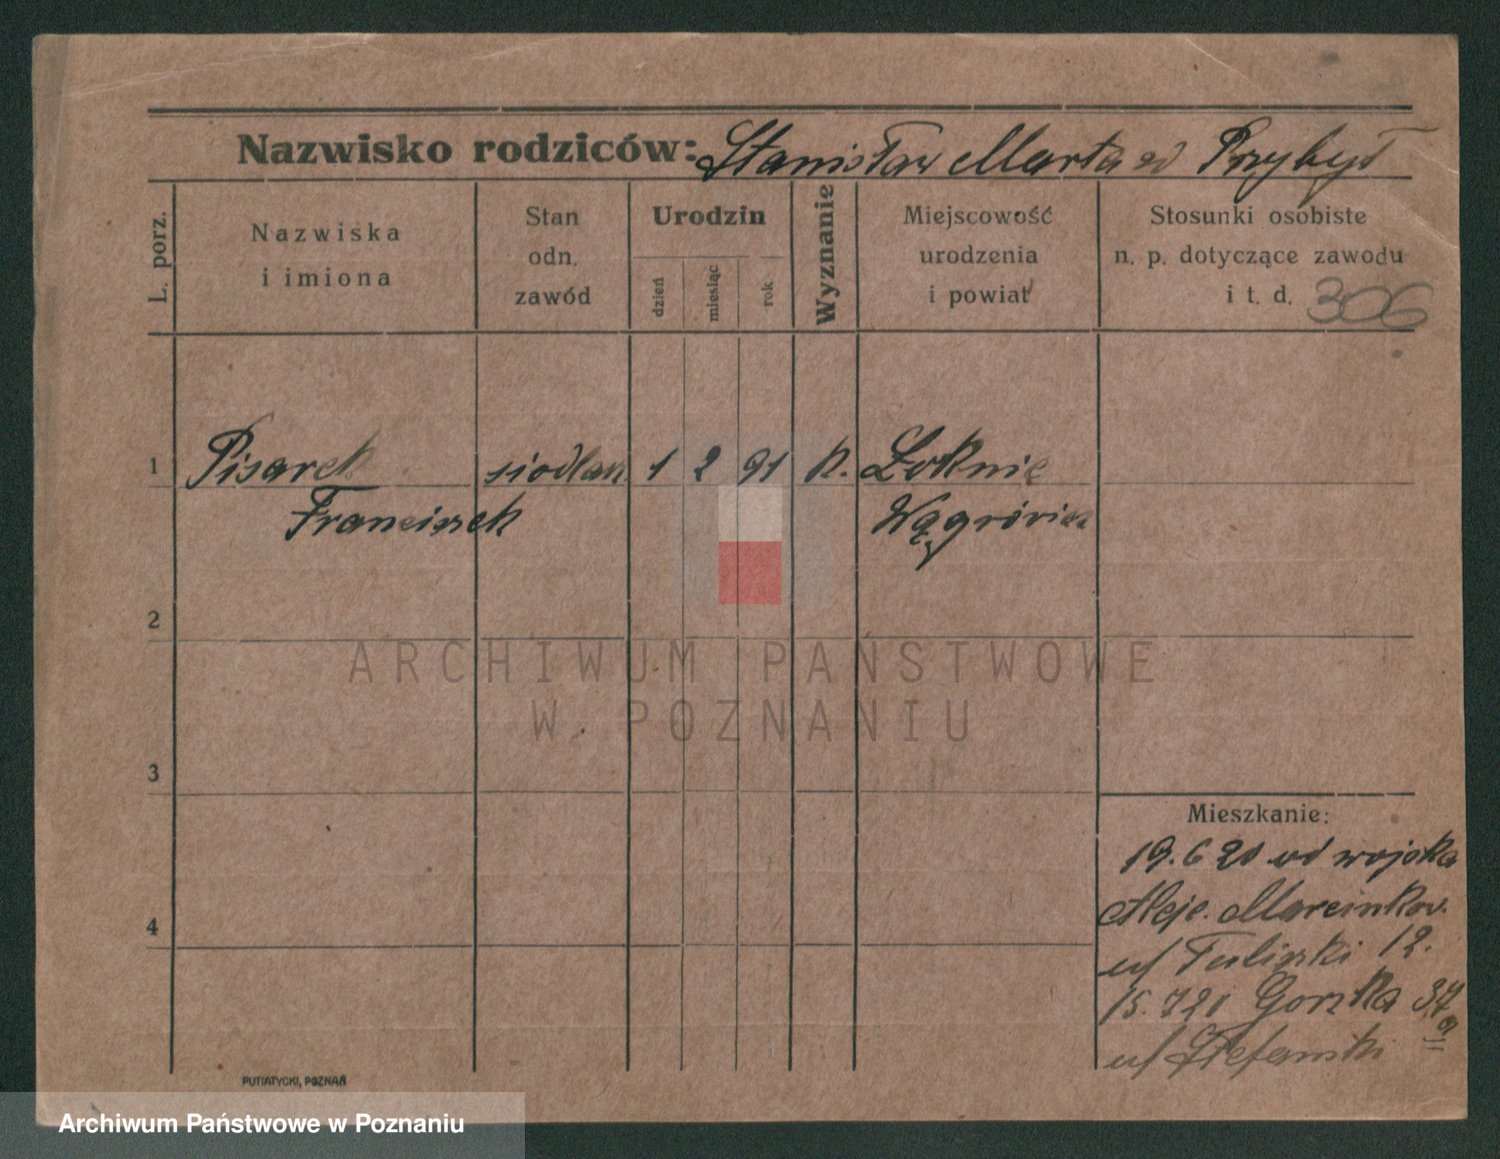 Nazwisko rodziców: Stanisław Marta zd Przybył
L. porz.
Nazwiska
i imiona
Stan
odn.
zawód
Urodzin
dzień
miesiąc
rok
Wyznanie
Miejscowość
urodzenia
i powiat
Stosunki osobiste
n. p. dotyczące zawodu
i t. d. 306
1 Pisarek siodlarz 1 2 91 k. Łeknie
Franciszek Wągrowiec
2
ARCHIWUM PAŃSTWOWE
W POZNANIU
3
Mieszkanie:
19.6 20 od wojska
4 Aleje. Marcinkow.
u/ 12.
15.7 20 Gorzka 34a
u/ Stefański
PUTIATYCKI, POZNAŃ
Archiwum Państwowe w Poznaniu